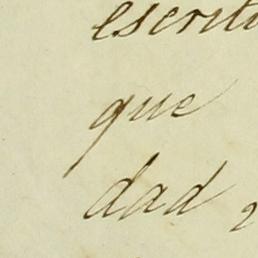 escritu
que
dad